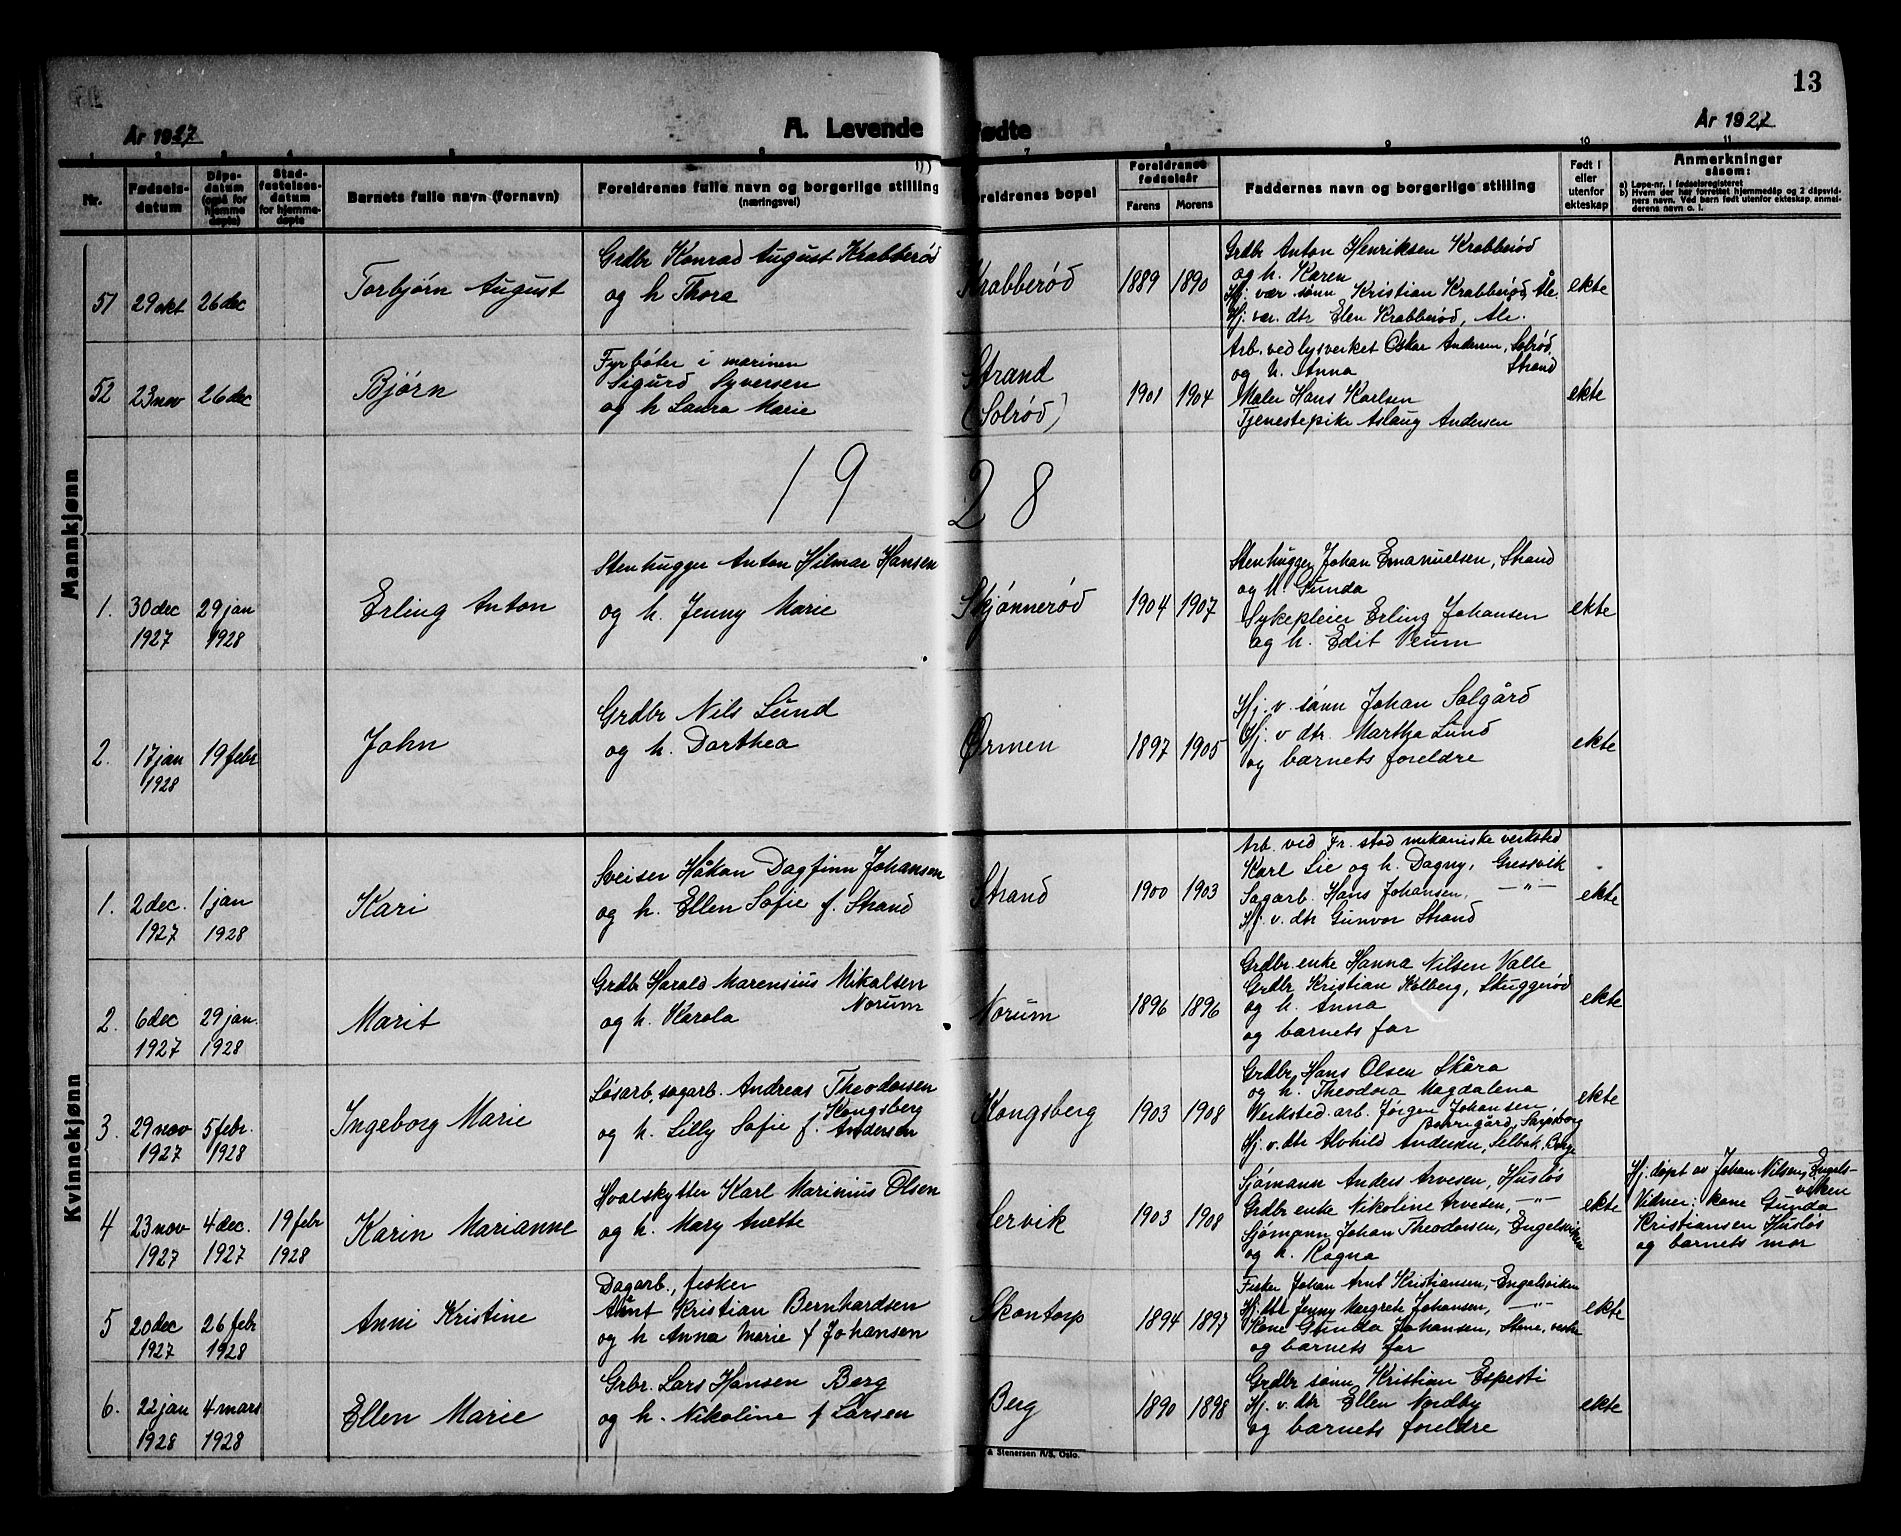 13
År 1927
A. Levende fødte
År 1927
Nr.
Fødselsdatum
Dåpsdatum (også for hjemmedøpte)
Stadfestelsesdatum for hjemmedøpte
Barnets fulle navn (fornavn)
Foreldrenes fulle navn og borgerlige stilling (næringsvei)
Foreldrenes bopel
Foreldrenes fødselsår
Farens
Morens
Faddernes navn og borgerlige stilling
Født i eller utenfor ekteskap
Anmerkninger såsom:
a) Løpe-nr. i fødselsregisteret
b) Hvem der har forrettet hjemmedåp og 2 dåpsvidners navn. Ved barn født utenfor ekteskap, anmelderens navn o. l.
Mannkjønn
51 29 okt 26 dec Torbjørn August
Grdbr Konrad August Krabberød
og h Thora
Krabberød 1889 1890
Grdbr Anton Henriksen Krabberød
og h. Karen
Hj. vær. sønn Kristian Krabberød, Åle.
Hj. vær. dtr Elen Krabberød, Åle.
ekte
52 23 nov 26 dec Bjørn
Fyrbøter i marinen
Sigurd Syversen
og h Laura Marie
Strand
(Solrød)
1901 1904
Arb. ved lysverket Oskar Andersen, Solrød,
og h. Anna Strand
Maler Hans Karlsen
Tjenestepike Aslaug Andersen
ekte
1928
1. 30 dec 29 jan Erling Anton
1927 1928
Stenhugger Anton Hilmar Hansen
og h. Jenny Marie
Skjønnerød 1904 1907
Stenhugger Johan Emanuelsen, Strand
og h. Gunda
Sykepleier Erling Johansen
og h. Edit Veum
ekte
2. 17 jan 19 febr John
1928
Grdbr Nils Lund
og h. Dorthea
Ørmen 1897 1905
Hj. v. sønn Johan Solgård
Hj. v dtr. Martha Lund
og barnets foreldre
ekte
Kvinnekjønn
1. 2 dec. 1 jan Kari
1927 1928
Sveiser Håkon Dagfinn Johansen
og h. Ellen Sofie f. Strand
Strand 1900 1903
Arb. ved Fr. stad mekaniske verksted
Karl Lie og h. Dagny, Gressvik
Sagarb. Hans Johansen, —"—
Hj. v. dtr Gunvor Strand
ekte
2. 6 dec 29 jan. Marit
1927 1928
Grdbr Harald Marensius Nikolsen
og h. Karola Norum
Norum 1896 1896
Grdbr. enke Hanna Nilsen Valle
Grdbr Kristian Kolberg, Skuggerød
og h. Anna
og barnets far
ekte
3. 29 nov 5 febr. Ingeborg Marie
1927 1928
Løsarb, sagarb. Andreas Theodorsen
Kongsberg
og h. Lilly Sofie f. Andersen
Kongsberg 1903 1908
Grdbr Hans Olsen Skåra
og h. Theodora Magdalena
Verksted. arb. Jørgen Johansen,
Borregård, Sarpsborg
Hj. v. dtr Alvhild Andersen, Selbak, Borge
ekte
4 23 nov 4 dec. 19 febr Karin Marianne
1927 1927 1928
Hvalskytter Karl Marinius Olsen
og h. Mary Anette
Lervik 1903 1908
Sjømann Anders Arvesen, Husløs
Grdbr enke Nikoline Arvesen, —"—
Sjømann Johan Theodorsen, Engelsviken
og h. Ragna
ekte
Hj. døpt av Johan Nilsen, Engelsviken
Vidner: kone Gunda
Kristiansen Husløs
og barnets mor
5 20 dec 26 febr Anni Kristine
1927 1928
Dagarb., fisker
Arnt Kristian Bernhardsen
og h Anna Marie f Johansen
Skontorp 1894 1897
Fisker Johan Arnt Kristiansen, Engelsviken
Hj. dtr Jenny Margrete Johansen, —"—
Kone Gunda Johansen, Stene, vestre
og barnets far
ekte
6. 22 jan 4 mars Ellen Marie
1928 1928
Grbr. Lars Hansen Berg
og h. Nikoline f Larsen
Berg 1890 1898
Grdbr sønn Kristian Espesti
Hj. v. dtr Ellen Nordby
og barnets foreldre
ekte
& Stenersen A/S. Oslo.